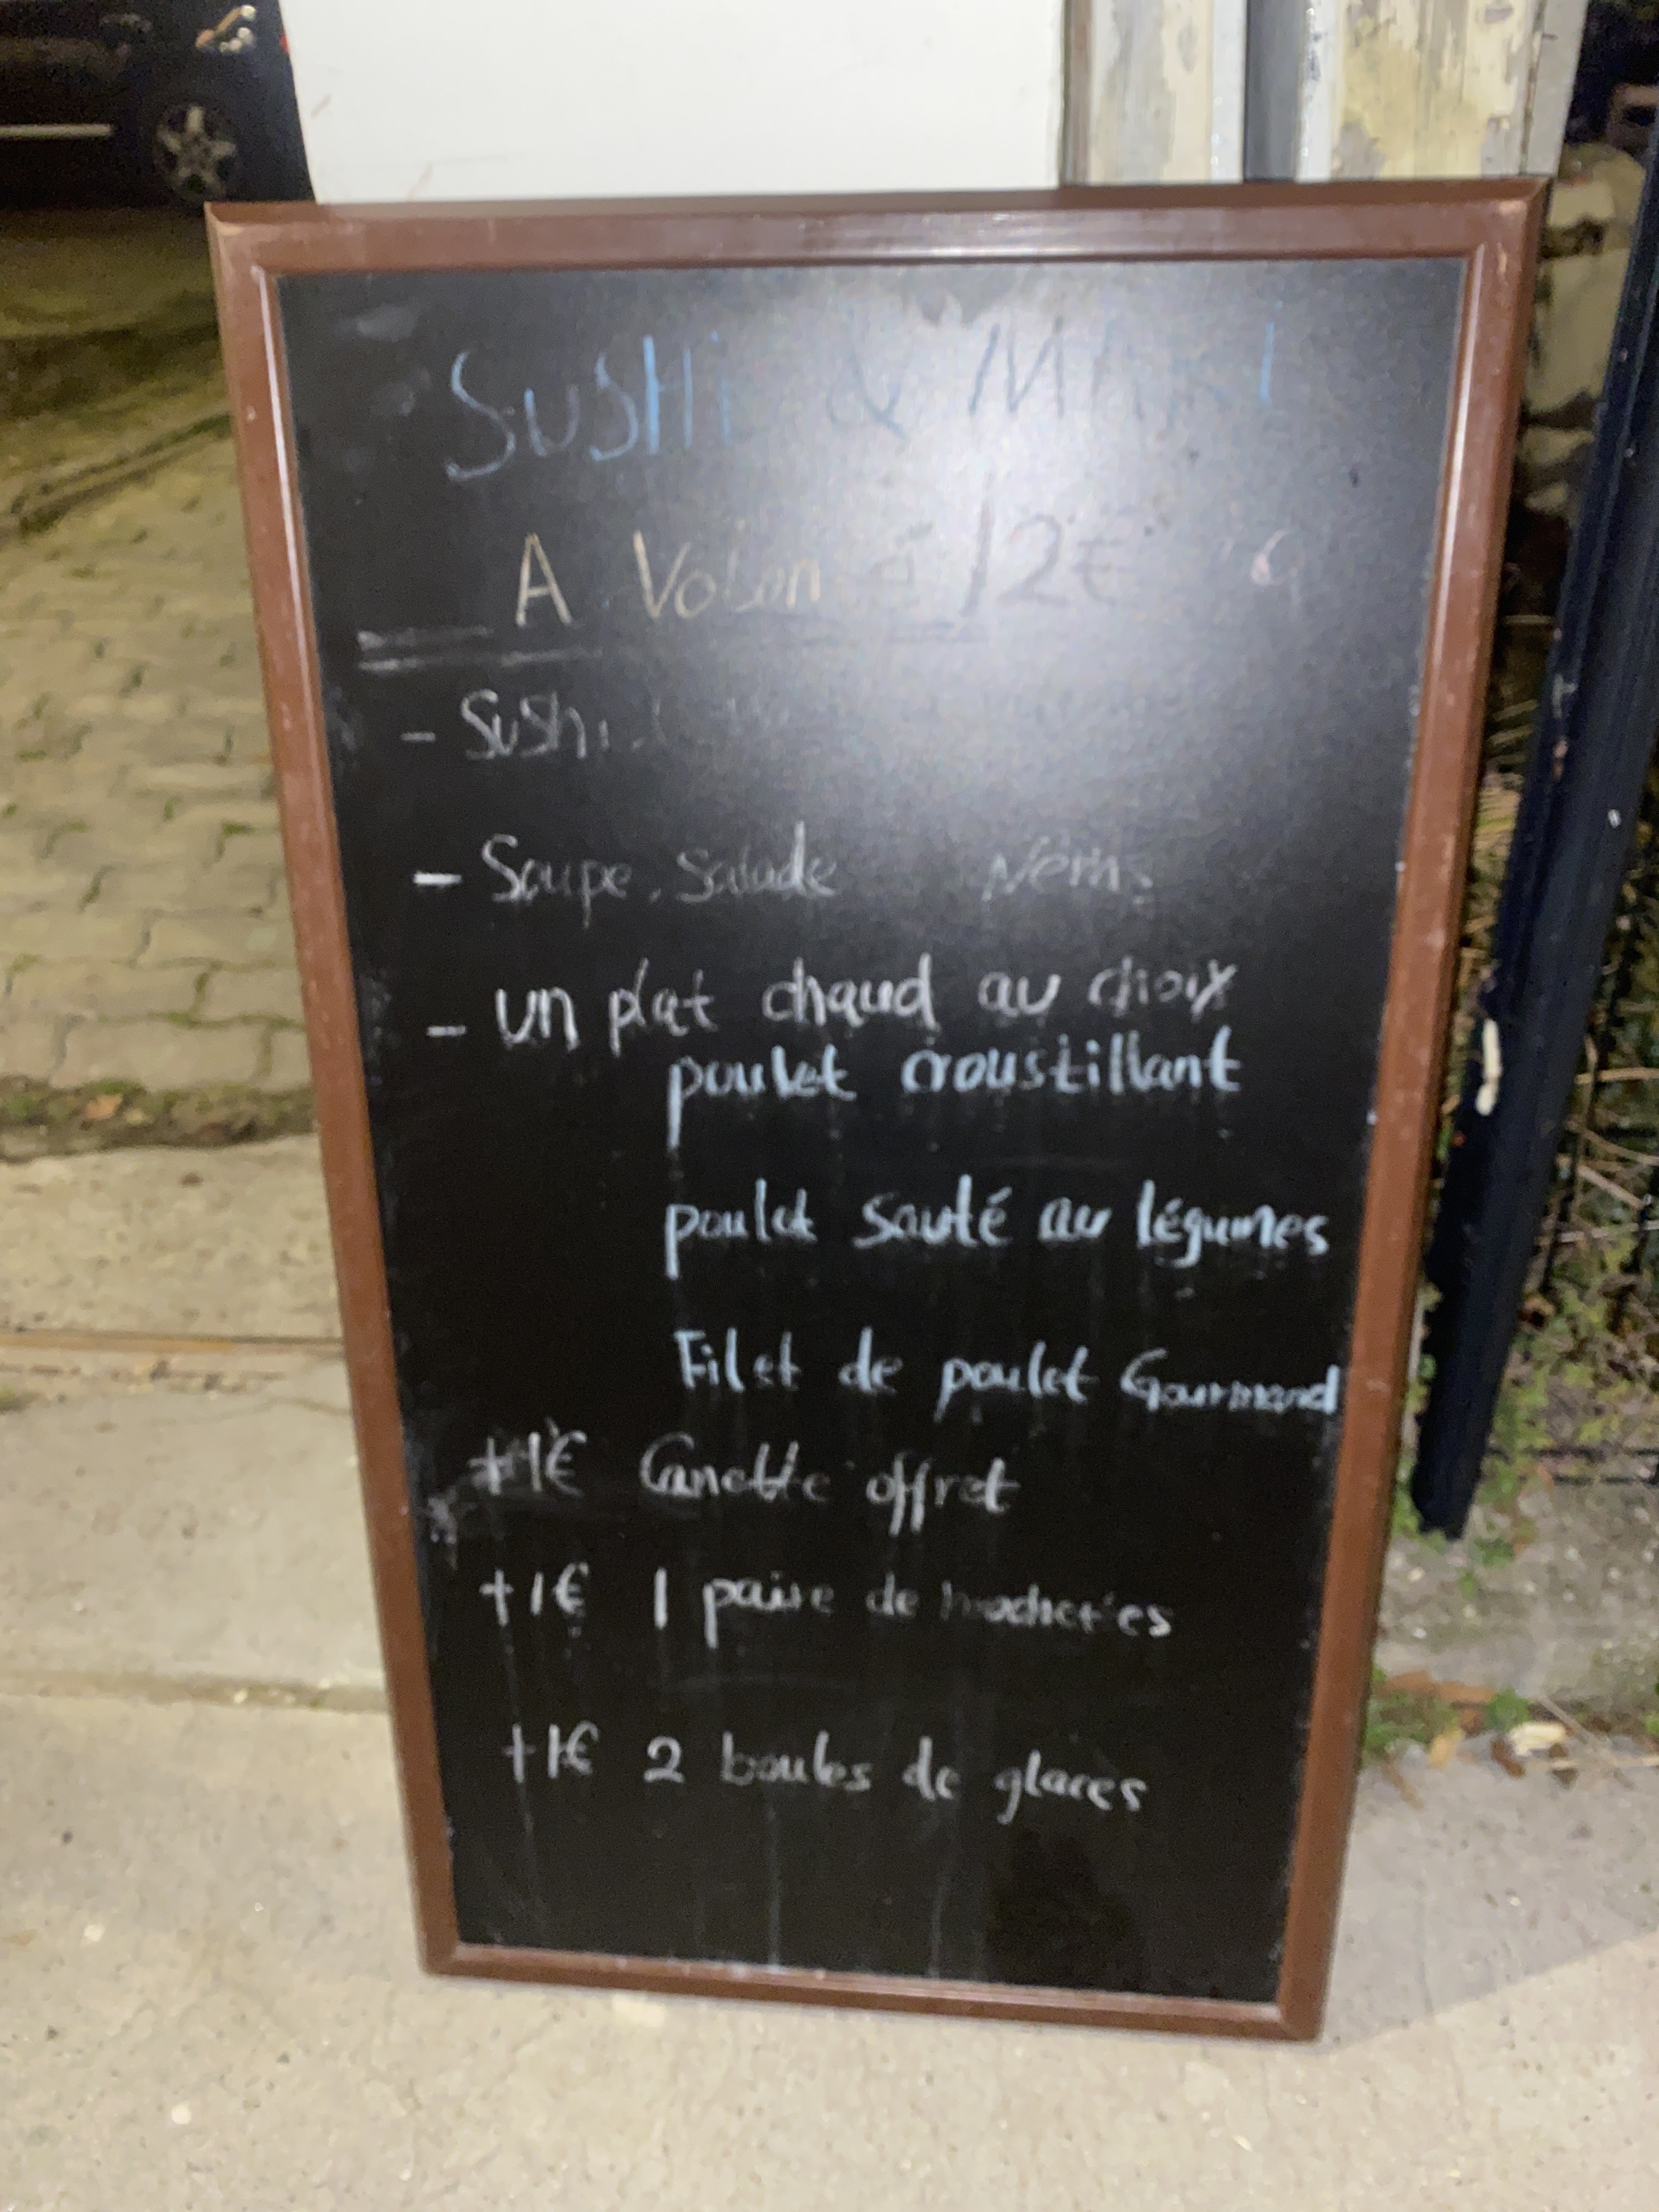 SUSHi & MAKI
A Volon 12€
- Sushi
- Soupe, Salade Néms
- un plat chaud au choix
poulet croustillant
poulet sauté au légumes
Filet de poulet Gourmand
+1€ Canette offret
+1€ 1 paire de
+1€ 2 boules de glaces